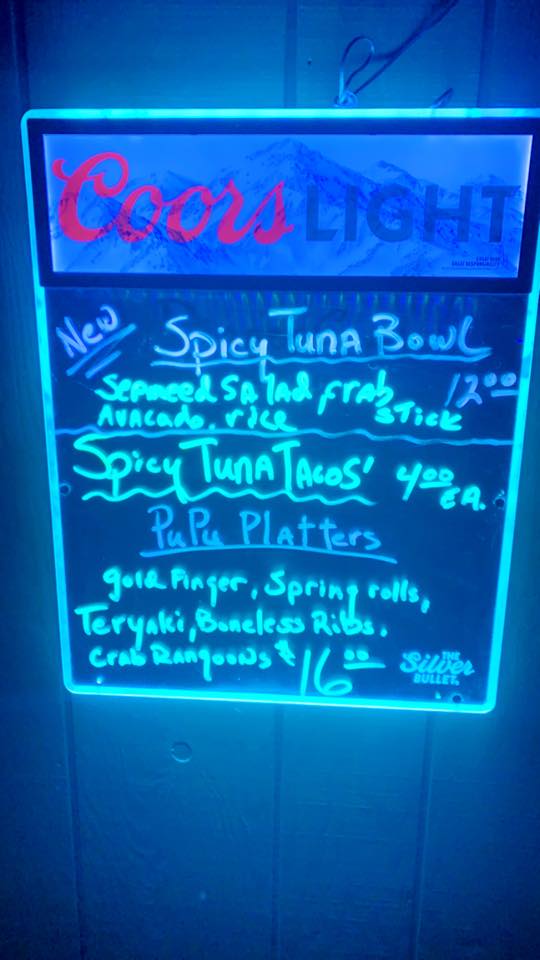 Coors LIGHT
New Spicy Tuna Bowl
Seaweed Salad, Crab Stick 12.00
Avacado, rice
Spicy Tuna Tacos' 4.00 EA.
PuPu Platters
gold Finger, Spring rolls,
Teryaki, Boneless Ribs,
Crab Rangoons $16.00
THE
Silver
BULLET.